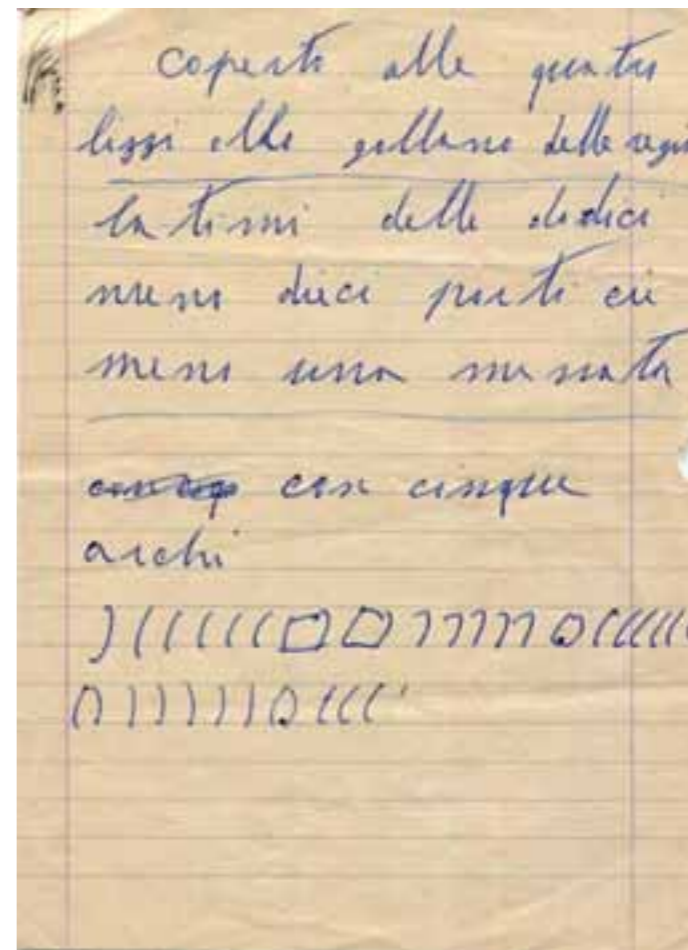 coperte alle quatro
lizzi alla gallano delle regi
la timi delle dodici
meno dieci porti cu
meno una menata
con cinque
archi